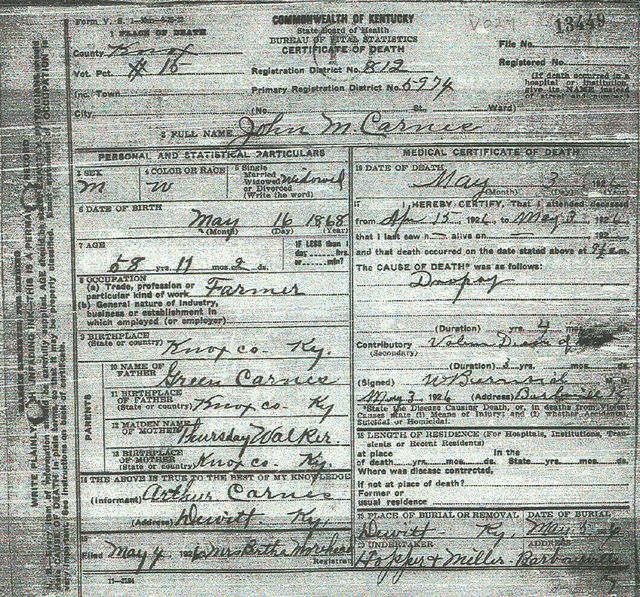 Form V. S. 1
COMMONWEALTH OF KENTUCKY
State Board of Health
BUREAU OF VITAL STATISTICS
CERTIFICATE OF DEATH
File No. 13449
1 PLACE OF DEATH
County Knox
Vot. Pct. # 15
Registration District No. 812
Registered No.
Inc. Town
Primary Registration District No. 5974
(If death occurred in a hospital or institution, give its NAME instead of street and number)
City (No. St., Ward)
2 FULL NAME John M. Carnes
PERSONAL AND STATISTICAL PARTICULARS
3 SEX M
4 COLOR OR RACE W
5 Single Married Widowed or Divorced (Write the word) Widowed
6 DATE OF BIRTH
May 16 1868
(Month) (Day) (Year)
7 AGE
58 yrs. 11 mos. 2 ds.
IF LESS than 1 day hrs. or min.?
8 OCCUPATION
(a) Trade, profession or particular kind of work Farmer
(b) General nature of industry, business or establishment in which employed (or employer)
9 BIRTHPLACE
(State or country) Knox co. Ky.
PARENTS
10 NAME OF FATHER Green Carnes
11 BIRTHPLACE OF FATHER
(State or country) Knox co. Ky
12 MAIDEN NAME OF MOTHER Thursday Walker
13 BIRTHPLACE OF MOTHER
(State or country) Knox co. Ky.
14 THE ABOVE IS TRUE TO THE BEST OF MY KNOWLEDGE
(Informant) Arthur Carnes
(Address) Dewitt Ky.
Filed May 4, 1926 Mrs Bertha Morehead
Registrar
MEDICAL CERTIFICATE OF DEATH
16 DATE OF DEATH
May 3
(Month) (Day) (Year)
17 I HEREBY CERTIFY, That I attended deceased
from Apr 15 1926, to May 3 1926
that I last saw h alive on
and that death occurred on the date stated above at
The CAUSE OF DEATH* was as follows:
Dropsy
(Duration) yrs. 4 mos. ds.
Contributory
(Secondary)
(Duration) 3 yrs. mos. ds.
(Signed)
May 3, 1926 (Address) Barbourville Ky
*State the Disease Causing Death, or, in deaths from Violent Causes state (1) Means of Injury; and (2) whether Accidental, Suicidal or Homicidal.
18 LENGTH OF RESIDENCE (For Hospitals, Institutions, Transients or Recent Residents)
at place of death yrs. mos. ds. In the State yrs. mos. ds.
Where was disease contracted,
If not at place of death?
Former or usual residence
19 PLACE OF BURIAL OR REMOVAL DATE OF BURIAL
Dewitt Ky. May 5
20 UNDERTAKER ADDRESS
Hopper & Miller Barbourville